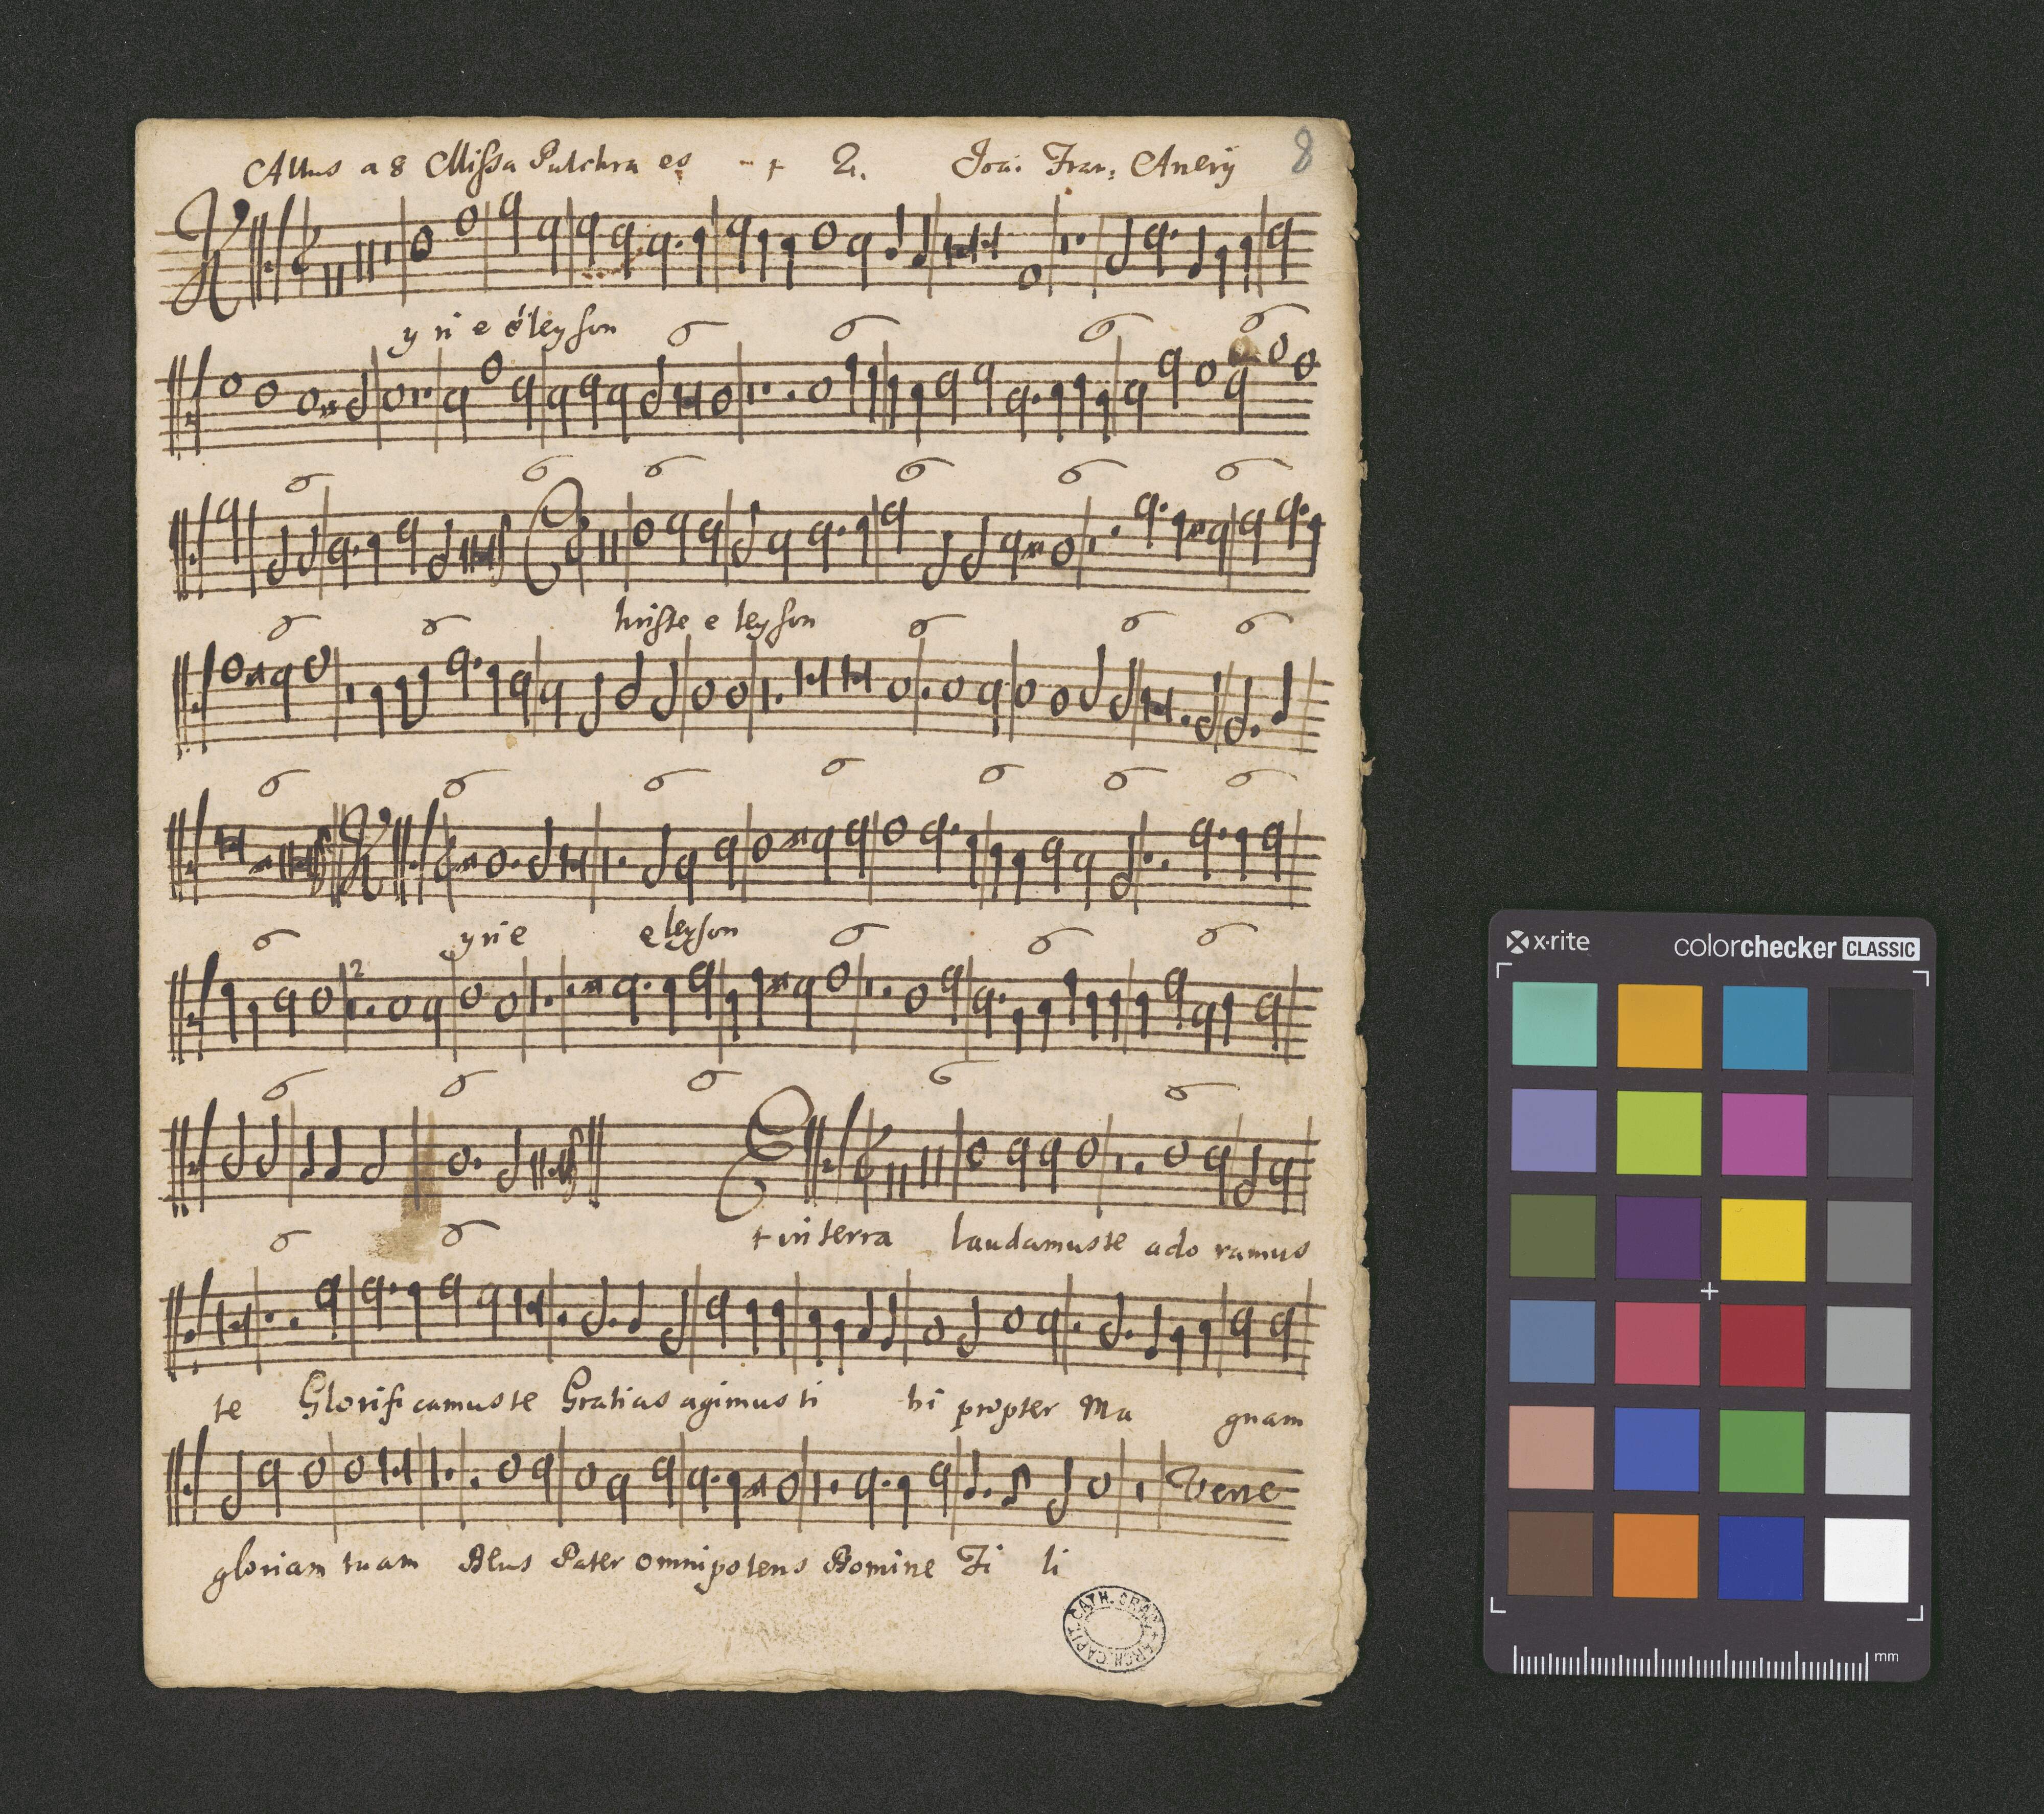 Altus a 8 Missa Pulchra es + 2. Joa: Fran: Anerÿ 8
K
y ri e e leyson
C
hriste e leyson
K
y ri e e leyson
12
E
t in terra laudamus te ado ramus
te Glorifi camus te Gratias agimus ti bi propter Ma gnam
Vene
gloriam tuam Deus Pater omnipotens Domine Fi li
CATH. CRAC. ARCH. CAPIT.
x-rite colorchecker CLASSIC
mm